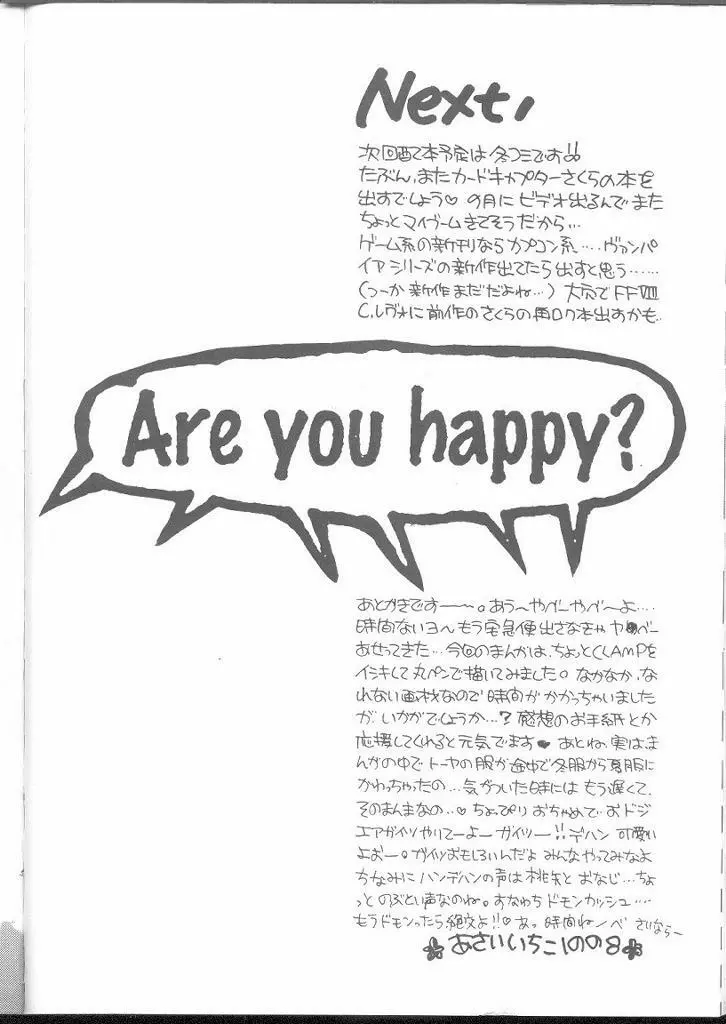 Next,
次回配本予定は冬コミです!!
たぶん、またカードキャプターさくらの本を
出すでしょう♡ 9月にビデオ出るんでまた
ちょっとマイブームきてそうだから…
ゲーム系の新刊ならカプコン系‥‥ヴァンパ
イアシリーズの新作出てたら出すと思う……
(つーか新作まだだよね…) 大穴でFFVIII
C.レヴォに前作のさくらの再ロク本出すかも…
Are you happy?
あとがきです――。あう〜やべーやべ〜よ‥‥
時間ないヨ〜もう宅急便出さなきゃヤベー
あせってきた…今回のまんがは、ちょっとCLAMPを
イシキして丸ペンで描いてみました。なかなか、な
れない画材なので時間がかかっちゃいました
が、いかがでしょうか…?感想のお手紙とか
応援してくれると元気でます♥ あとね、実は、ま
んがの中でトーヤの服が途中で冬服から夏服に
かわっちゃったの…気がついた時にはもう遅くて、
そのまんまなの…♡ ちょっぴりおちゃめでおドジ
エアガイツやりてーよーガイツー!!デハン可愛い
よおー。ガイツおもしろいんだよみんなやってみなよ
ちなみにハンデハンの声は桃矢とおなじ…ちょ
っとのぶとい声なのね。すなわちドモンカッシュ‥‥
もうドモンったら、絶交よ!!♡あっ時間ねーべ さいならー
あさいいちこ1998